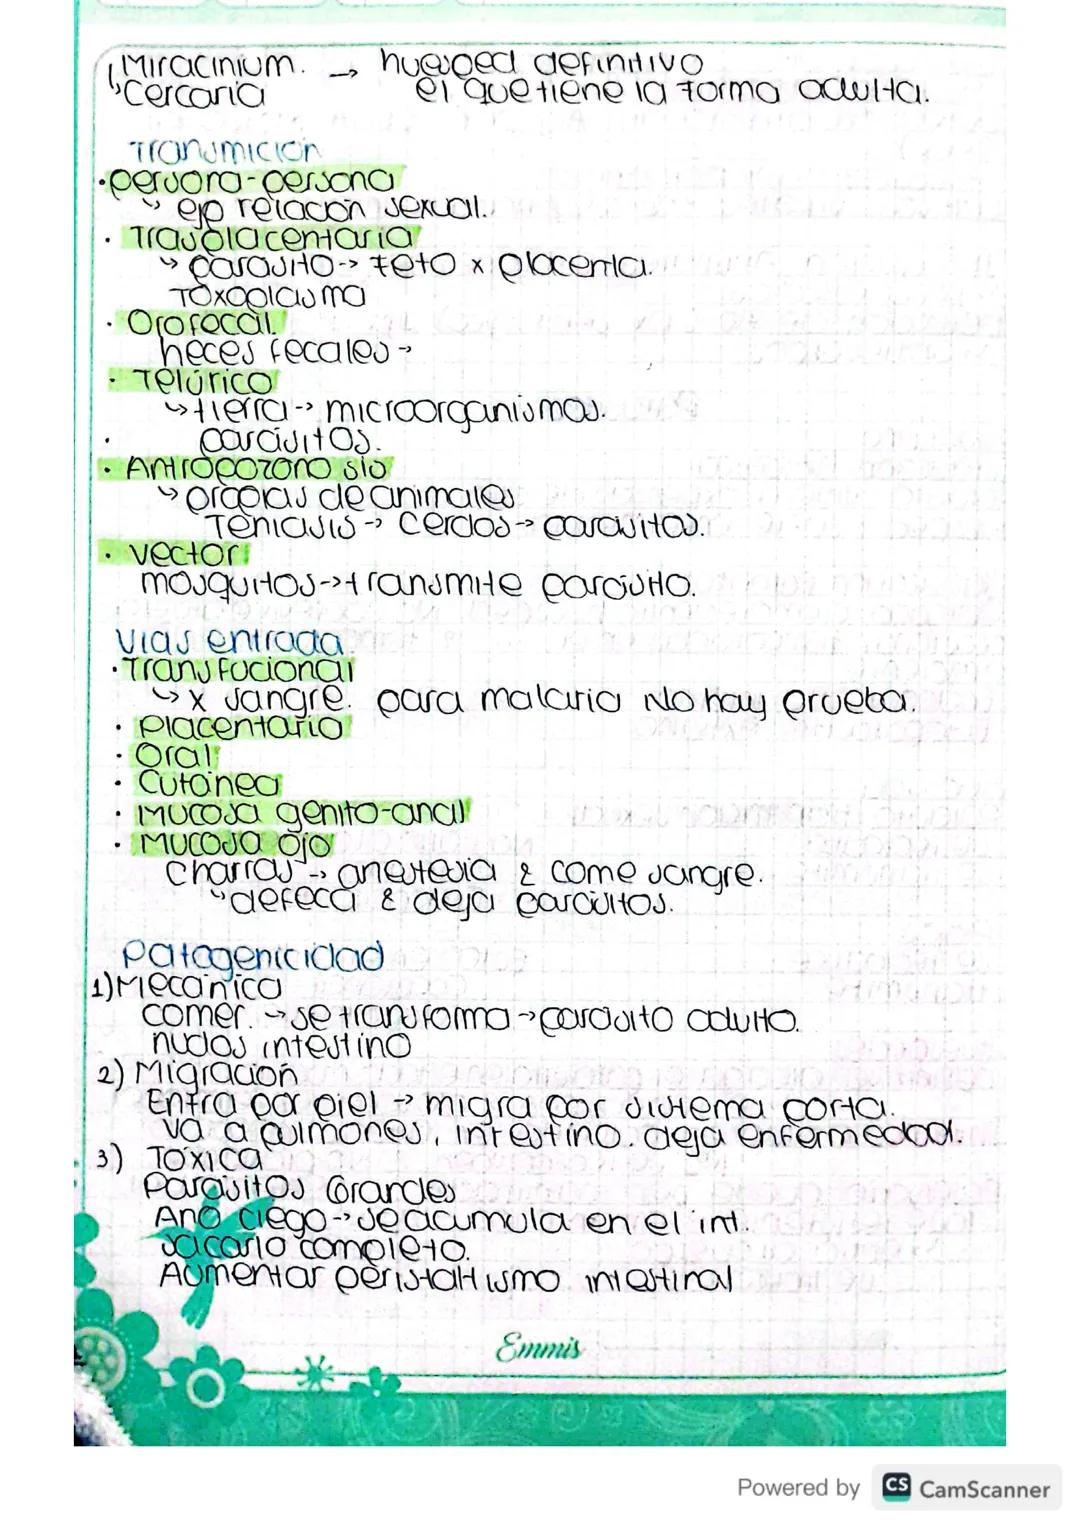 Miracinium. → huesped definitivo
↳Cercaria el que tiene la forma adulta.
Transmicion
·persona-persona
↳ ejp relacion sexual.
· Trasplacentaria
↳ parasito-> feto x placenta.
Toxoplasma
· Orofecal.
heces fecales→
· Telúrico
↳ tierra-> microorganismos.
· parásitos.
· Antropozono sis
↳ propias de animales
Teniasis→ Cerdos→ parasitos.
· vector
mosquitos->transmite parásito.
Vias entrada.
·Transfucional
↳ x sangre. para malaria No hay prueba.
· Placentario
· Oral
· Cutánea
· Mucosa genito-anal
· Mucosa ojo
Charras→ anestesia & come sangre.
↳defeca & deja parásitos.
Patogenicidad
1) Mecánica
comer. →se transforma→parasito adulto.
nudos intestino
2) Migración
Entra por piel → migra por sistema porta.
va a pulmones, intestino. deja enfermedad.
3) Tóxica
Parasitos Grandes
Ano ciego→se acumula en el int.
sacarlo completo.
Aumentar peristaltismo intestinal
Emmis
Powered by CS CamScanner